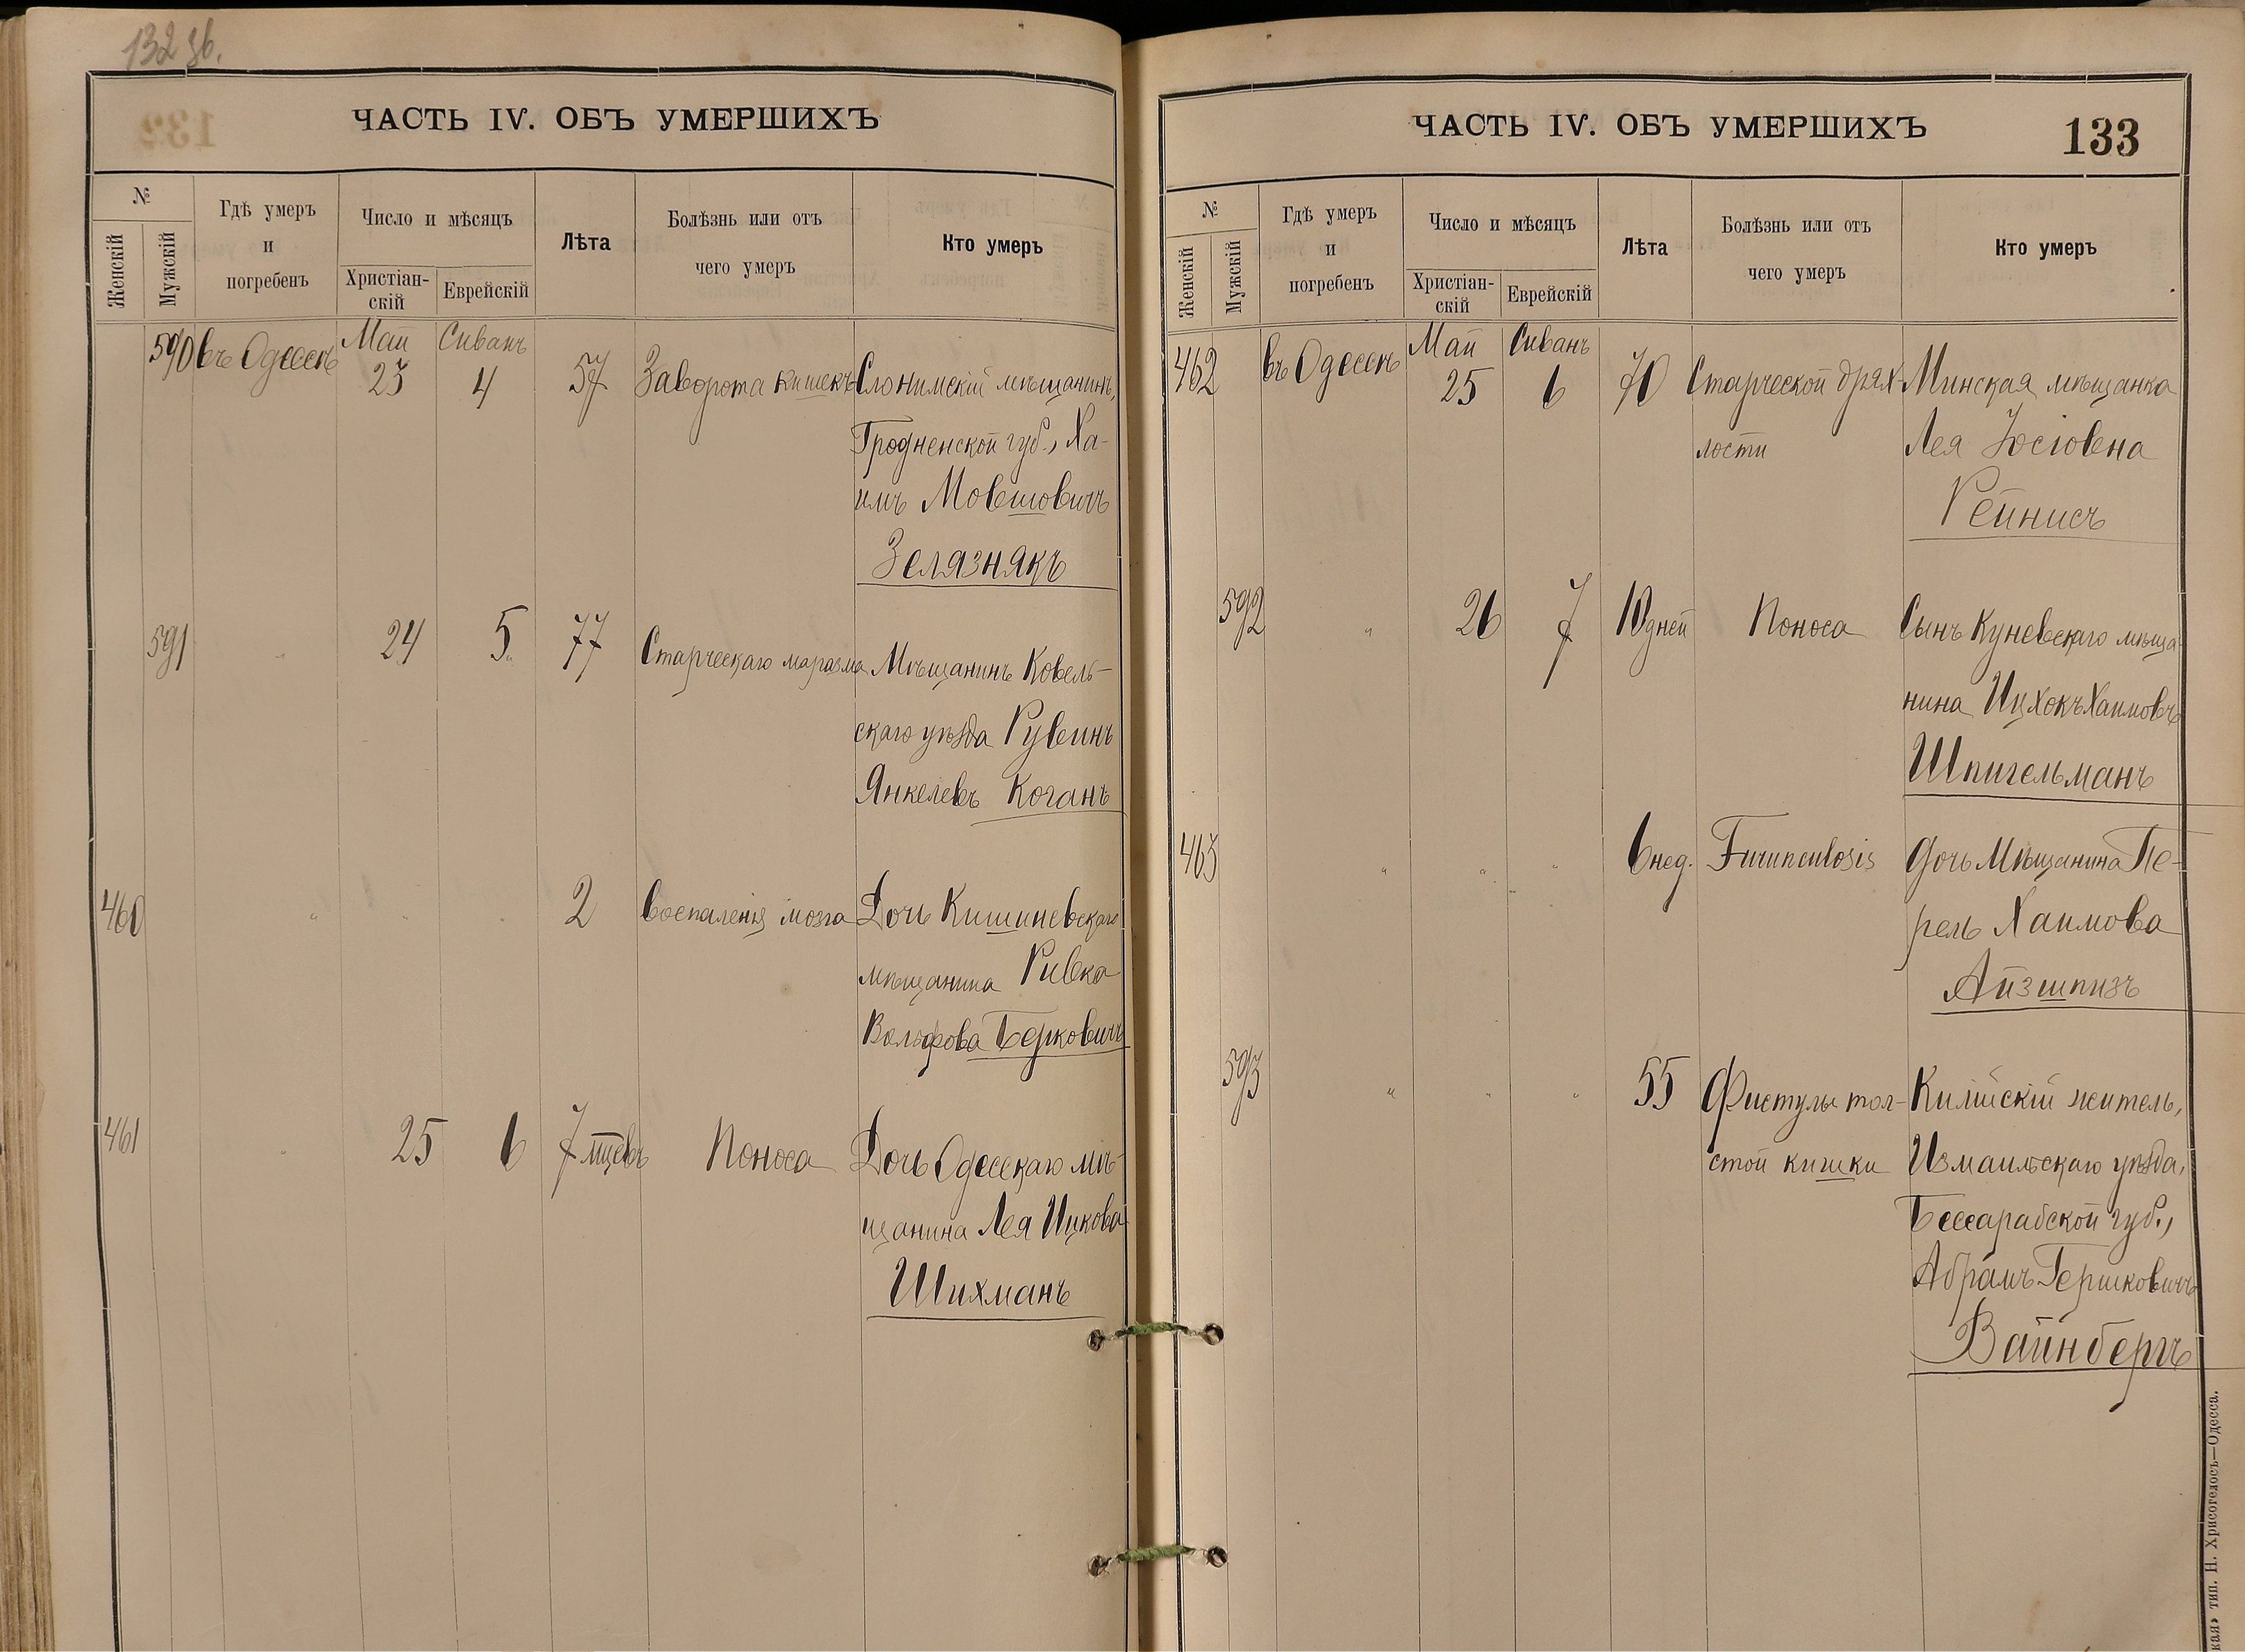 132 зв.
ЧАСТЬ IV. ОБЪ УМЕРШИХЪ
№
Женскій
Мужскій
Гдѣ умеръ
и
погребенъ
Число и мѣсяцъ
Христіан-
скій
Еврейскій
Лѣта
Болѣзнь или отъ
чего умеръ
Кто умеръ
Май Сиванъ
590 въ Одессѣ 23 4 57 Заворота кишекъ Слонимскій мѣщанинъ,
Гродненской губ., Ха-
имъ Мовшовичъ
Зелязнякъ
591 " 24 5 77 Старческаго маразма Мѣщанинъ Ковель-
скаго уѣзда Рувинъ
Янкелевъ Коганъ
460 " " " 2 Воспаленія мозга Дочь Кишиневскаго
мѣщанина Ривка
Вольфова Берковичъ
461 " 25 6 7 мцевъ Поноса Дочь Одесскаго мѣ-
щанина Лея Ицкова
Шихманъ
ЧАСТЬ IV. ОБЪ УМЕРШИХЪ
133
№
Женскій
Мужскій
Гдѣ умеръ
и
погребенъ
Число и мѣсяцъ
Христіан-
скій
Еврейскій
Лѣта
Болѣзнь или отъ
чего умеръ
Кто умеръ
Май Сиванъ
462 въ Одессѣ 25 6 70 Старческой дрях- Минская мѣщанка
лости Лея Іосіовна
Рейнисъ
592 " 26 7 10 дней Поноса Сынъ Куневскаго мѣща-
нина Ицхокъ Хаимовъ
Шпигельманъ
463 " " " 6 нед. Furunculosis Дочь Мѣщанина Пе-
рель Хаимова
Айзшпизъ
593 " " " 55 Фистулы тол- Килійскій житель,
стой кишки Измаильскаго уѣзда,
Бессарабской губ.,
Абрамъ Гершковичъ
Вайнбергъ
тип. Н. Хрисогелосъ—Одесса.